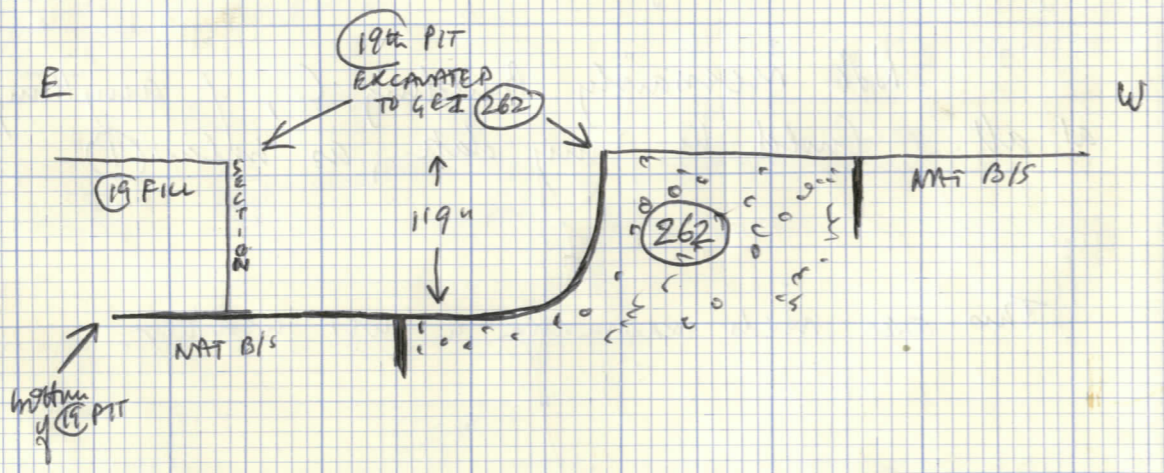 19th PIT
EXCAVATED
TO GET 262
E
W
19 FILL
SECTION
119"
262
NAT B/S
NAT B/S
bottom
of 19 PIT